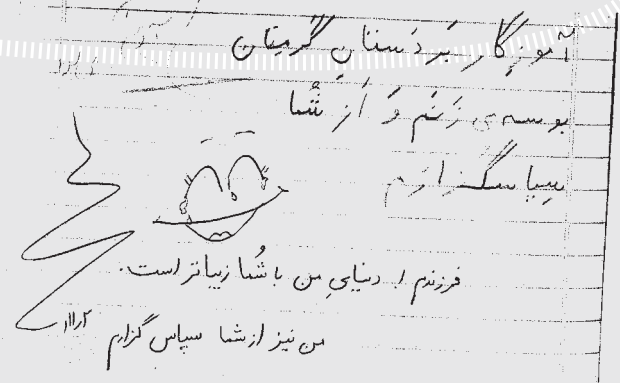 آموزگار بَر دَستانِ گرمِتان
بوسه می زَنَم وَ اَز شُما
سِپاسگزارَم
فرزندم! دنیایِ من با شُما زیباتر است.
من نیز از شما سپاس گزارم